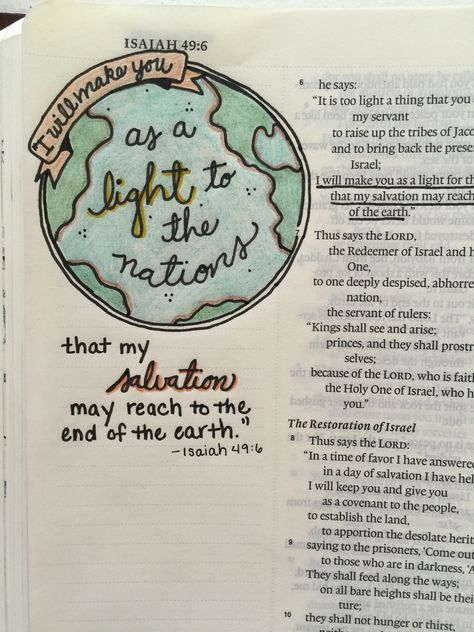 ISAIAH 49:6
I will make you
as a
light to
the
nations
that my
salvation
may reach to the
end of the earth."
-Isaiah 49:6
6 he says:
"It is too light a thing that you
my servant
to raise up the tribes of Jaco
and to bring back the prese
Israel;
I will make you as a light for th
that my salvation may reach
of the earth."
7 Thus says the LORD,
the Redeemer of Israel and h
One,
to one deeply despised, abhorre
nation,
the servant of rulers:
"Kings shall see and arise;
princes, and they shall prostr
selves;
because of the LORD, who is faith
the Holy One of Israel, who h
you."
The Restoration of Israel
8 Thus says the LORD:
"In a time of favor I have answered
in a day of salvation I have hel
I will keep you and give you
as a covenant to the people,
to establish the land,
to apportion the desolate herit
9 saying to the prisoners, 'Come out
to those who are in darkness, 'A
They shall feed along the ways;
on all bare heights shall be thei
ture;
10 they shall not hunger or thirst,